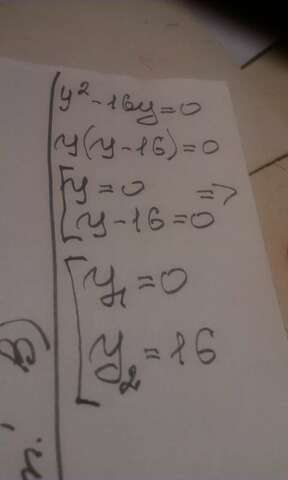 y² - 16y = 0
y(y - 16) = 0
[ y = 0 =>
[ y - 16 = 0
[ y₁ = 0
[ y₂ = 16